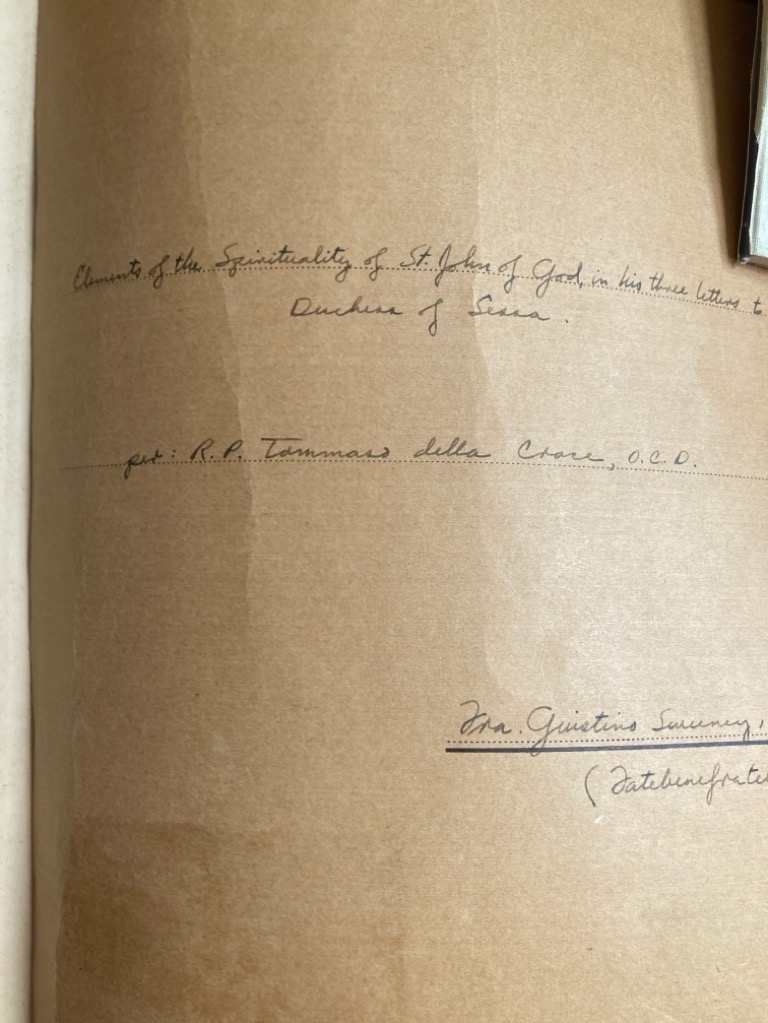 Elements of the Spirituality of St. John of God, in his three letters to
Duchess of Sessa.
per: R. P. Tommaso della Croce, O.C.D.
Fra. Giustino Sweeney,
(Fatebenefratel